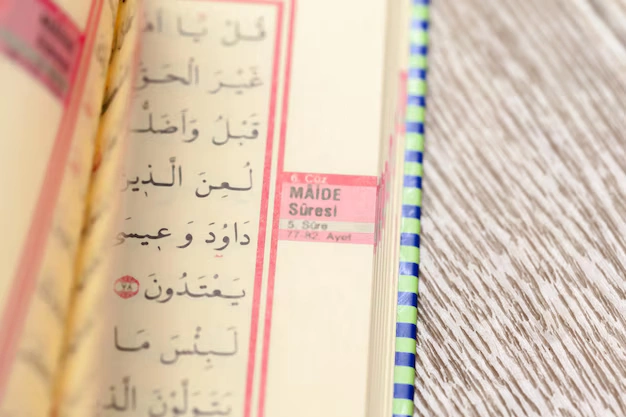 قُلْ يَٓا
غَيْرَ الْحَقِّ
قَبْلُ وَاَضَلُّ
لُعِنَ الَّذ۪ينَ
دَاوُ۫دَ وَع۪يسَى
يَعْتَدُونَ ﴿٧٨﴾
لَبِئْسَ مَا
يَتَوَلَّوْنَ الَّذ۪
6. Cüz
MÂİDE
Sûresi
5. Sûre
77-82. Ayet